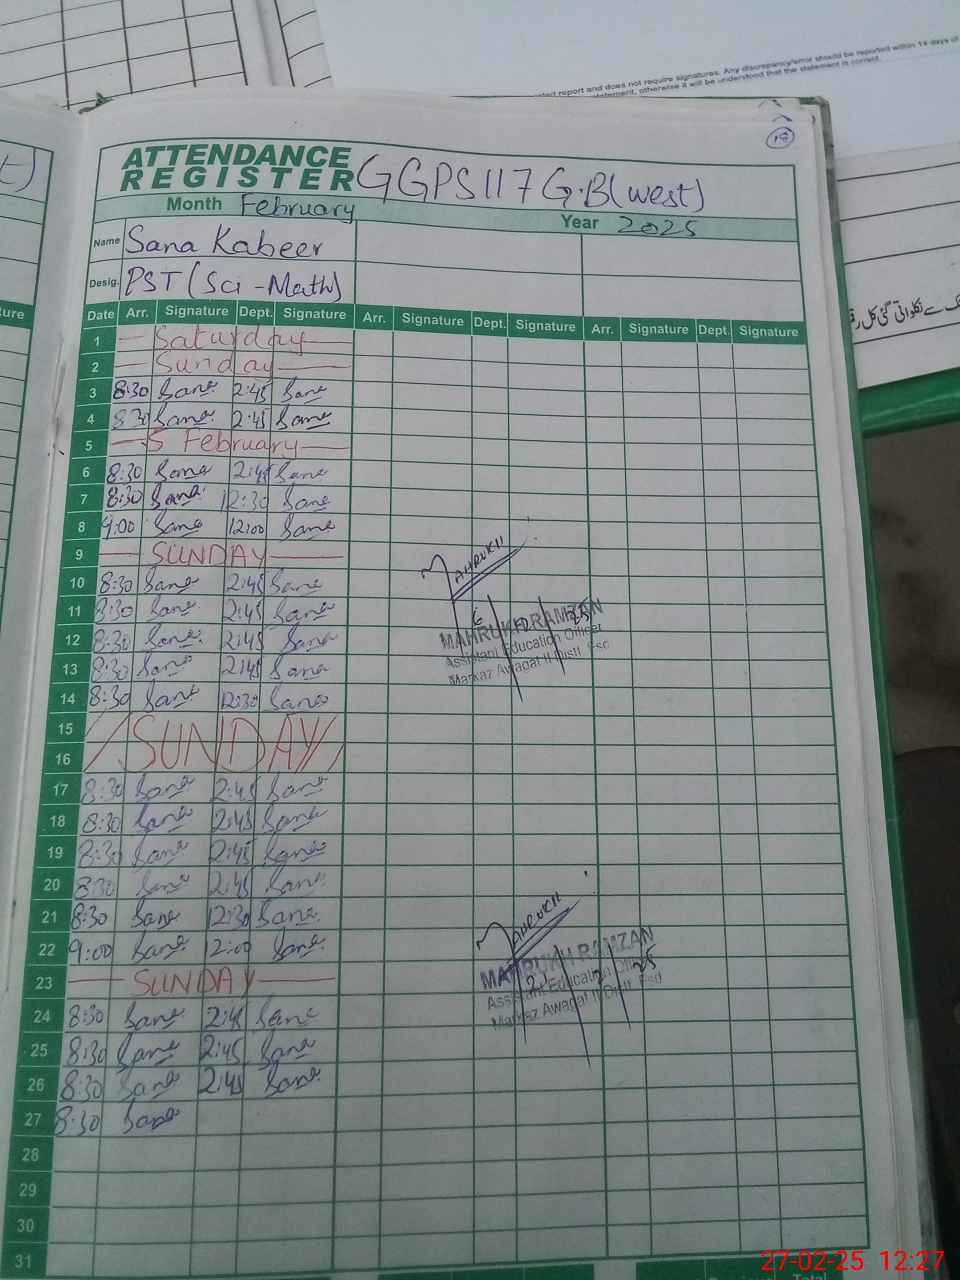 ted report and does not require signatures. Any discrepancy/error should be reported within 14 days of
statement, otherwise it will be understood that the statement is correct.
15
ATTENDANCE
REGISTER GGPS 117 G.B(west)
Month February Year 2025
Name Sana Kabeer
Desig. PST (Sci-Math)
Date Arr. Signature Dept. Signature Arr. Signature Dept. Signature Arr. Signature Dept. Signature
1 Saturday
2 Sunday
3 8:30 Sana 2:45 Sana
4 8:30 Sana 2:45 Sana
5 5 February
6 8:30 Sana 2:45 Sana
7 8:30 Sana 12:30 Sana
8 9:00 Sana 12:00 Sana
9 SUNDAY
10 8:30 Sana 2:45 Sana
11 8:30 Sana 2:45 Sana
12 8:30 Sana 2:45 Sana
13 8:30 Sana 2:45 Sana
14 8:30 Sana 12:30 Sana
MAHRUKH
MAHRUKH RAMZAN
Assistant Education Officer
Markaz Awagat II Distt. Fsd
15
SUNDAY
16
17 8:30 Sana 2:45 Sana
18 8:30 Sana 2:45 Sana
19 8:30 Sana 2:45 Sana
20 8:30 Sana 2:45 Sana
21 8:30 Sana 12:30 Sana
22 9:00 Sana 12:00 Sana
23 SUNDAY
24 8:30 Sana 2:45 Sana
25 8:30 Sana 2:45 Sana
26 8:30 Sana 2:45 Sana
27 8:30 Sana
MAHRUKH
MAHRUKH RAMZAN
Assistant Education Officer
Markaz Awagat II Distt. Fsd
28
29
30
31
27-02-25 12:27